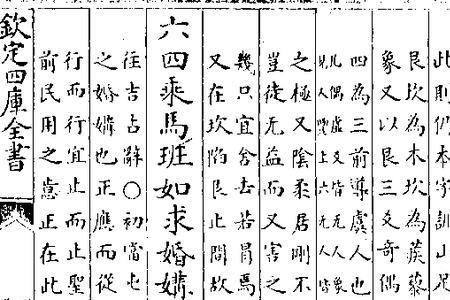 此則仍本字訓山足
艮坎為木坎為蒺藜
象又以艮三爻奇偶
四為三前導虞人也
之極又陰柔居剛不
豈徒无益而又害之
幾只宜舍去若冒焉
又在坎陷艮止間故
六四乘馬班如求婚媾
往吉占辭○初當七
之婚媾也正應而從
行而行宜止而止聖
前民用之意正在此
欽定四庫全書